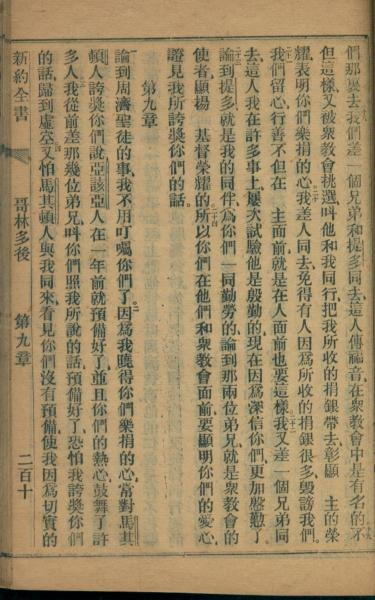 們那裏去我們差一個兄弟和提多同去這人傳福音在眾教會中是有名的不
但這樣又被眾教會挑選叫他和我同行把我所收的捐銀帶去彰顯 主的榮
耀表明你們樂捐的心我差人同去免得有人因爲所收的捐銀很多毀謗我們
我們留心行善不但在 主面前就是在人面前也要這樣我又差一個兄弟同
去這人我在許多事上屢次試驗他是殷勤的現在因爲深信你們更加慇懃了
論到提多就是我的同伴爲你們一同勤勞的論到那兩位弟兄就是眾教會的
使者顯揚 基督榮耀的所以你們在他們和眾教會面前要顯明你們的愛心
證見我所誇獎你們的話
第九章
論到周濟聖徒的事我不用叮囑你們了因爲我曉得你們樂捐的心常對馬其
頓人誇獎你們說亞該亞人在一年前就預備好了並且你們的熱心鼓舞了許
多人我從前差那幾位弟兄叫你們照我所說的話預備好了恐怕我誇獎你們
的話歸到虛空又怕馬其頓人與我同來看見你們沒有預備使我因爲切實的
新約全書 哥林多後 第九章 二百十